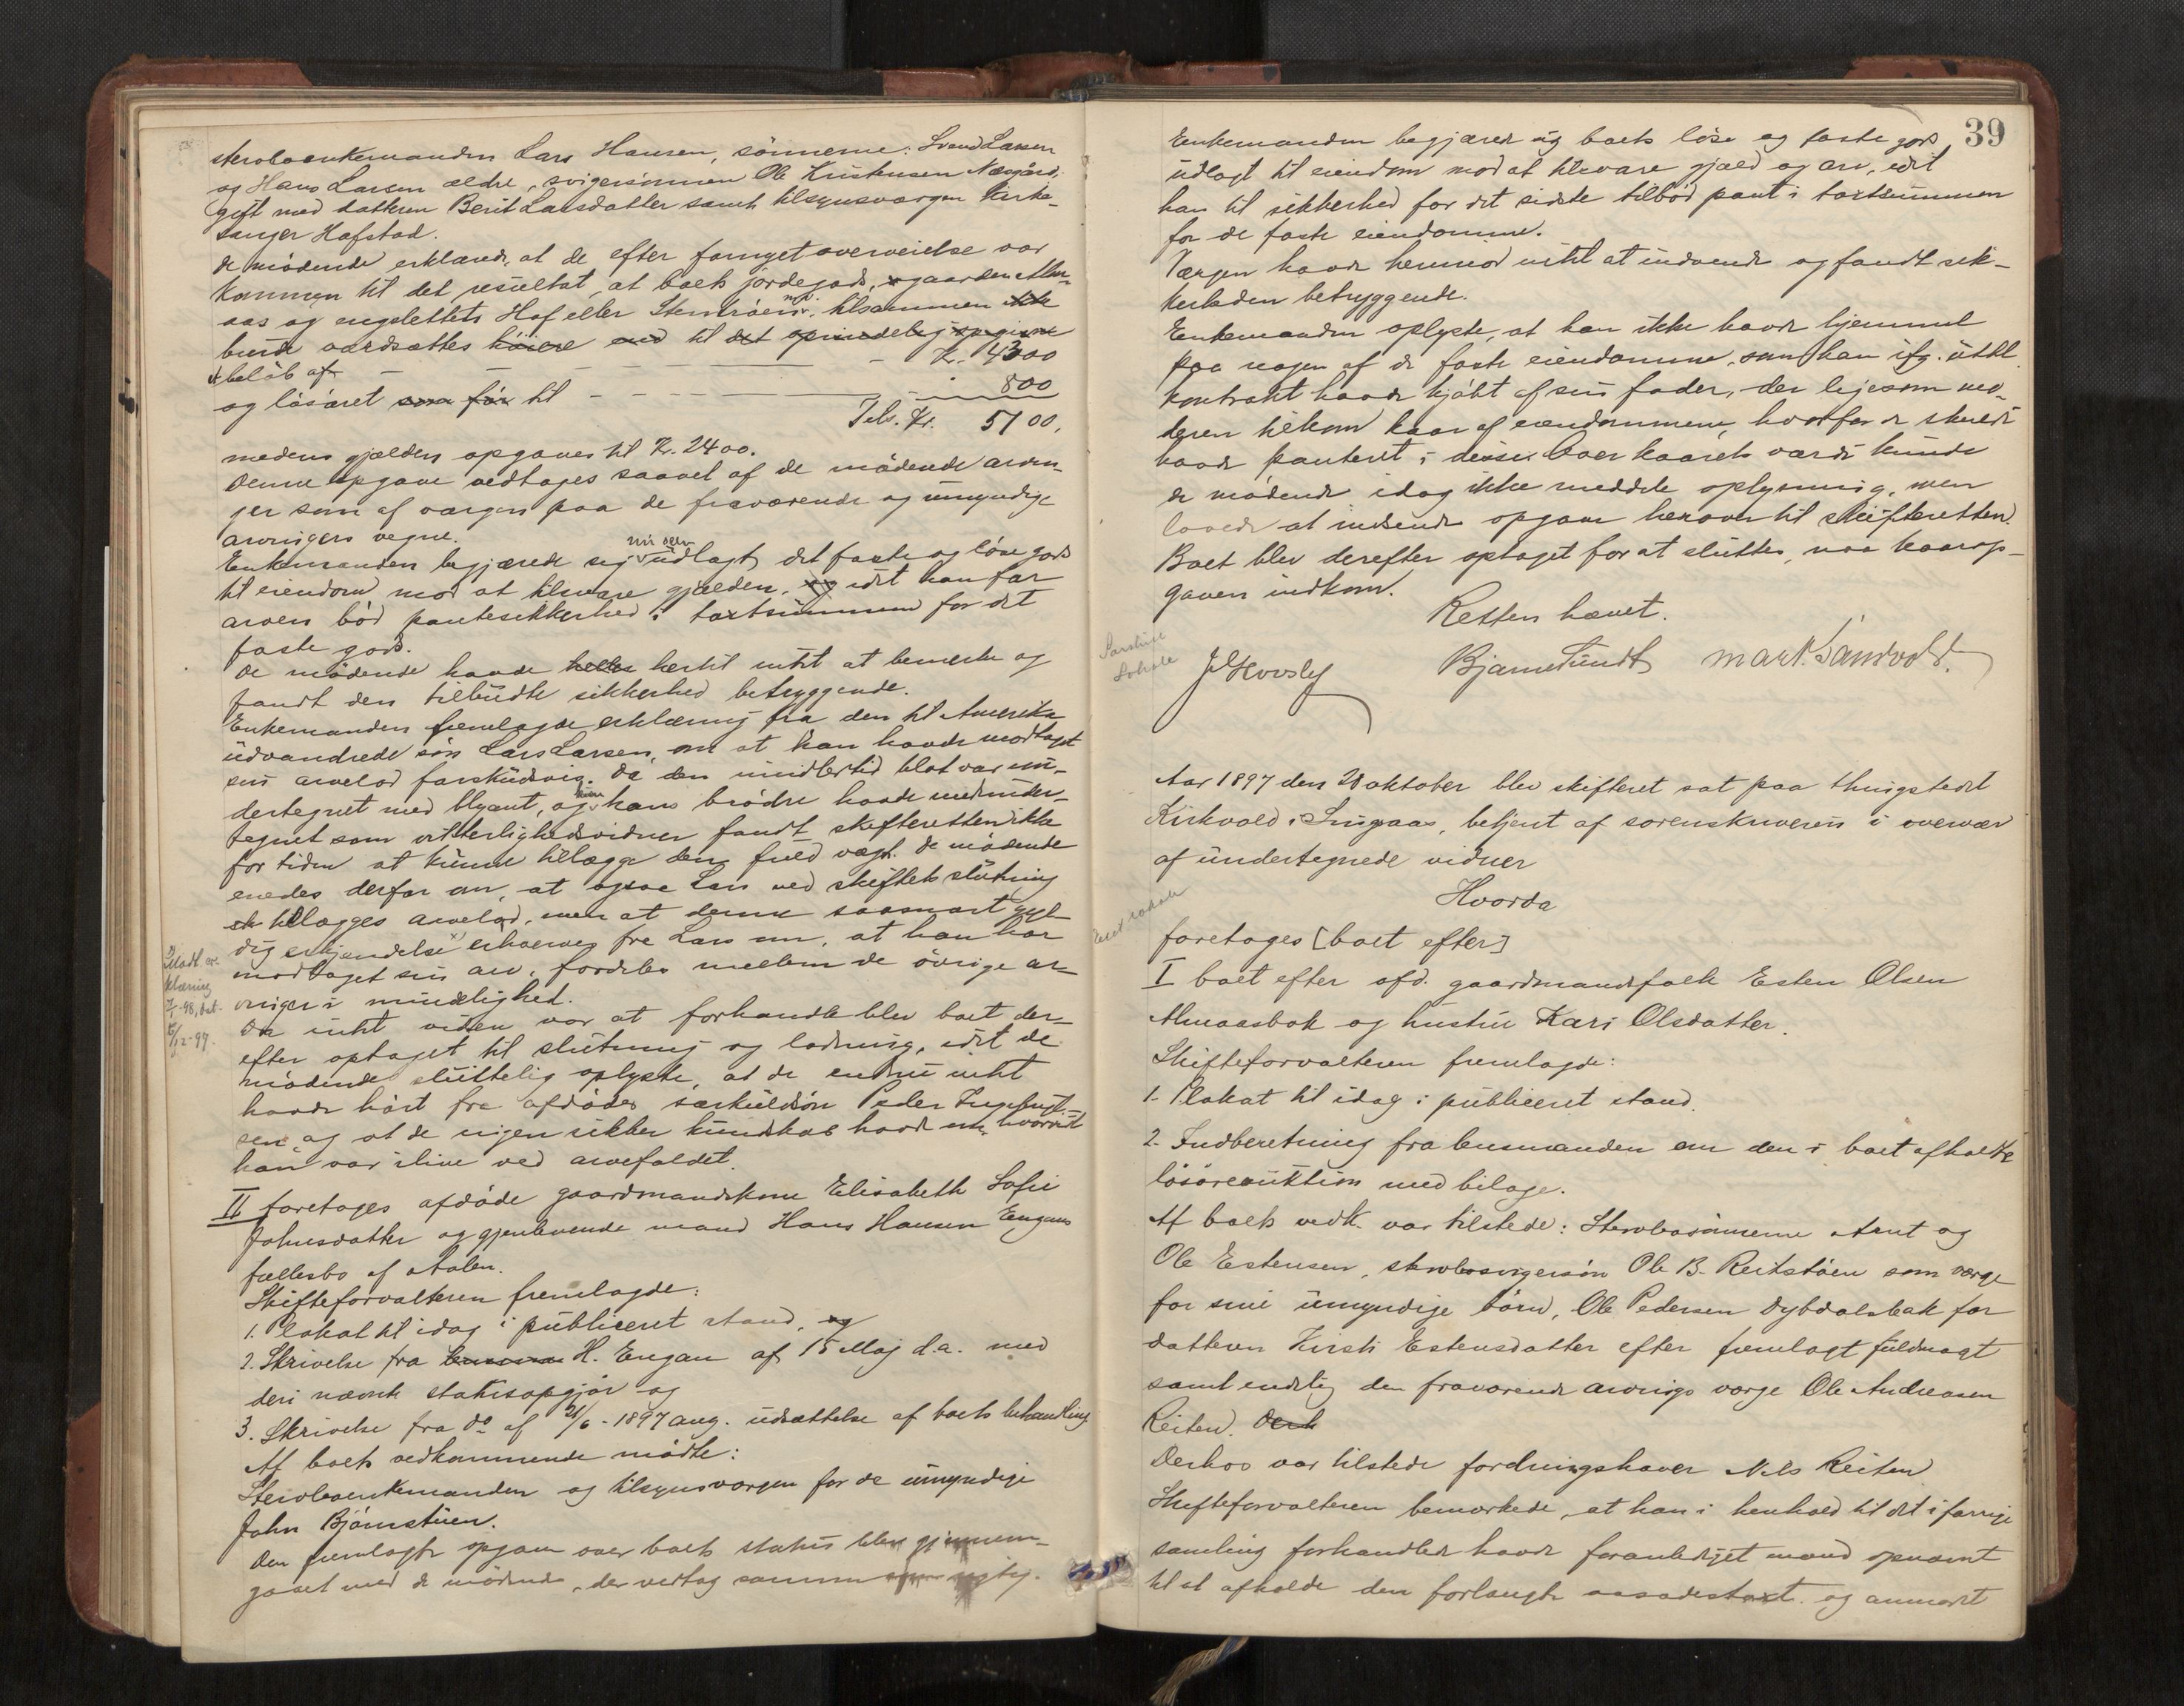 sterboenkemanden Lars Hansen, sønnerne: Svend Larsen
og Hans Larsen ældre, svigersønnen Ole Kristensen Næsgård,
gift med datteren Berit Larsdatter samt tilsynsværgen kirke-
sanger Hofstad.
De mødende erklærede, at de efter fornyet overveielse var
kommen til det resultat, at boets jordegods, gaarden Alm-
aas og engslettets Hof eller Stenrøen, tilsammen ikke
burde værdsættes høiere end til det oprindelig opgivne
beløb af - - - Kr. 4300
og løsøret som før til - - - - - 800
Tils. Kr. 5100,
medens gjælden opgaves til Kr. 2400.
Denne opgave vedtages saavel af de mødende arvin-
ger som af værgen paa de fraværende og umyndige
arvingers vegne.
Enkemanden begjærede sig nu selv udlagt det faste og løse gods
til eiendom mod at tilsvare gjælden, og idet han for
arven bød pantesikkerhed i taxtsummen for det
faste gods.
De mødende havde heller hertil intet at bemerke og
fandt den tilbudte sikkerhed betryggende.
Enkemanden fremlagde erklæring fra den til Amerika
udvandrede søn Lars Larsen, om at han havde modtaget
sin arvelod forskudsvis. Da den imidlertid blot var un-
dertegnet med blyant, og kun hans brødre havde medunder-
tegnet som vitterlighedsvidner fandt skifteretten ikke
for tiden at kunne tillægge den fuld vægt. De mødende
enedes derfor om, at ogsaa Lars ved skiftets slutning
tillægges arvelod, men at denne saasnart gyl-
dig erkjendelse x) erhverves fra Lars om, at han har
modtaget sin arv, fordeles mellem de øvrige ar-
vinger i mindelighed.
Modt. er-
klæring
7/1-98, dat.
15/12-97.
Da intet viden var at forhandle blev boet der-
efter optaget til slutning og lodning, idet de
mødende sluttelig oplyste, at de endnu intet
havde hørt fra afdødes særkuldsøn Peder Ingebrigt-
sen og at de ingen sikker kundskab havde om, hvorvidt
han var ilive ved arvefaldet.
II foretoges afdøde gaardmandskone Elisabeth Sofie
Johnsdatter og gjenlevende mand Hans Hansen Engans
fællesbo af Aalen.
Skifteforvalteren fremlagde:
1. Plakat til idag i publiceret stand, og
2. Skrivelse fra H. Engan af 15 Maj d.a. med
deri nævnte statusopgjør og
3. Skrivelse fra do af 21/6-1897 ang. udsættelse af boets behandling
Af boets vedkommende mødte:
Sterboenkemanden og tilsynsværgen for de umyndige
John Bjørnstuen.
Den fremlagte opgave over boets status blev gjennem-
gaaet med de mødende, der vedtog samme som rigtig.
39
Enkemanden begjærede sig boets løse og faste gods
udlagt til eiendom mod at tilsvare gjæld og arv, idet
han til sikkerhed for det sidste tilbød pant i taxtsummen
for de faste eiendomme.
Værgen havde herimod intet at indvende og fandt sik-
kerheden betryggende.
Enkemanden oplyste, at han ikke havde hjemmel
paa nogen af de faste eiendomme, som han ifg. uthl.
kontrakt havde kjøbt af sin fader, der ligesom mo-
deren tilkom kaar af eiendommene, hvorfor de skulde
have panteret i disse. Over kaarets værdi kunde
de mødende idag ikke meddele oplysning, men
lovede at indsende opgave herover til skifteretten.
Boet blev derefter optaget for at sluttes, naar kaarop-
gaven indkom.
Retten hævet.
Særskilte
Dokete
J Hovsby Bjarne Lundt Mart. Sandvold.
Aar 1897 den 28 oktober blev skifteret sat paa thingstedet
Kirkvold i Singsaas, betjent af sorenskriveren i overvær
af undertegnede vidner
Hvorda
foretoges [boet efter]
I boet efter afd. gaardmandsfolk Esten Olsen
Almaasbak og hustru Kari Olsdatter.
Skifteforvalteren fremlagde:
1. Plakat til idag i publiceret stand.
2. Indberetning fra lensmanden om den i boet afholdte
løsøreauktion med bilage.
Af boets vedk. var tilstede: Sterbosønnerne Arnt og
Ole Estensen, sterbosvigersøn Ole B. Reitstøen som værge
for sine umyndige børn, Ole Pedersen Dybdalsbak for
datteren Kirsti Estensdatter efter fremlagt fuldmagt
samt endelig den fraværende arvings værge Ole Andreasen
Reiten. Derh
Derhos var tilstede fordringshaver Nils Reiten
Skifteforvalteren bemærkede, at han i henhold til det i forrige
samling forhandlede havde foranlediget mænd opnævnt
til at afholde den forlangte aasædestaxt og anmodet